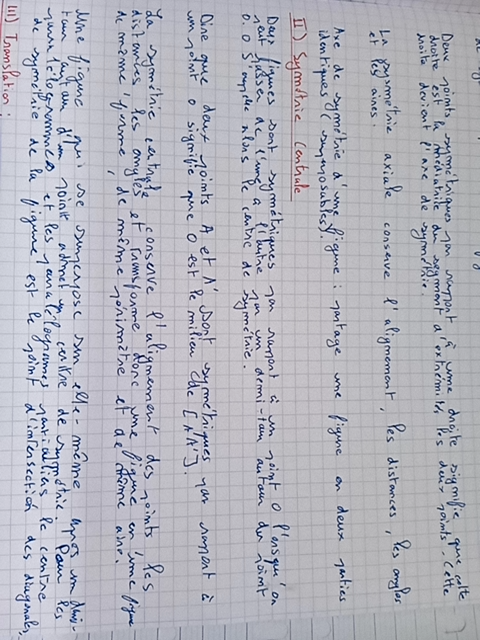 Deux points symétriques par rapport à une droite signifie que cette
droite est la médiatrice du segment d'extrémités les deux points. Cette
droite devient l'axe de symétrie
La symétrie axiale conserve l'alignement, les distances, les angles
et les aires.
Axe de symétrie d'une figure : partage une figure en deux parties
identiques (superposables).
II) Symétrie Centrale
Deux figures sont symétriques par rapport à un point O lorsqu'on
peut passer de l'une à l'autre par un demi-tour autour du point
O. O s'appelle alors le centre de symétrie.
Dire que deux points A et A' sont symétriques par rapport à
un point O signifie que O est le milieu de [AA'].
La symétrie centrale conserve l'alignement des points les
distances, les angles et transforme donc une figure en une figure
de même forme, de même périmètre et de même aire.
Une figure qui se superpose sur elle-même après un demi-
tour autour d'un point admet un centre de symétrie. Pour les
parallélogrammes et les parallélogrammes particuliers le centre
de symétrie de la figure est le point d'intersection des diagonales.
III) Translation :